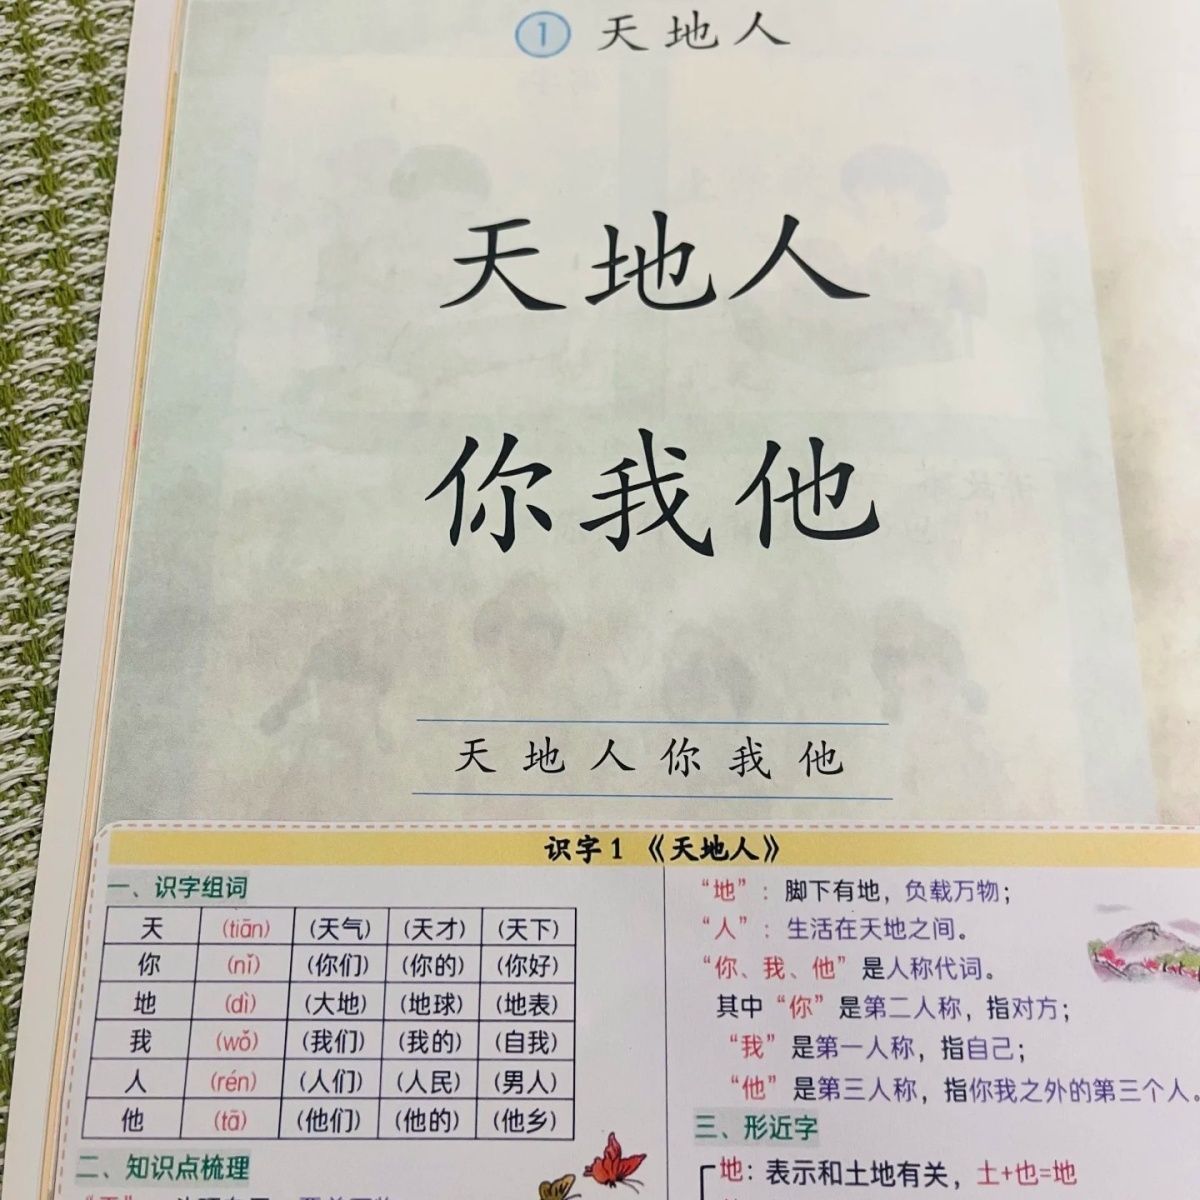 1 天地人
天地人
你我他
天地人你我他
识字1《天地人》
一、识字组词
天 (tiān) (天气) (天才) (天下)
你 (nǐ) (你们) (你的) (你好)
地 (dì) (大地) (地球) (地表)
我 (wǒ) (我们) (我的) (自我)
人 (rén) (人们) (人民) (男人)
他 (tā) (他们) (他的) (他乡)
二、知识点梳理
“地”：脚下有地，负载万物；
“人”：生活在天地之间。
“你、我、他”是人称代词。
其中“你”是第二人称，指对方；
“我”是第一人称，指自己；
“他”是第三人称，指你我之外的第三个人。
三、形近字
地：表示和土地有关，土+也=地